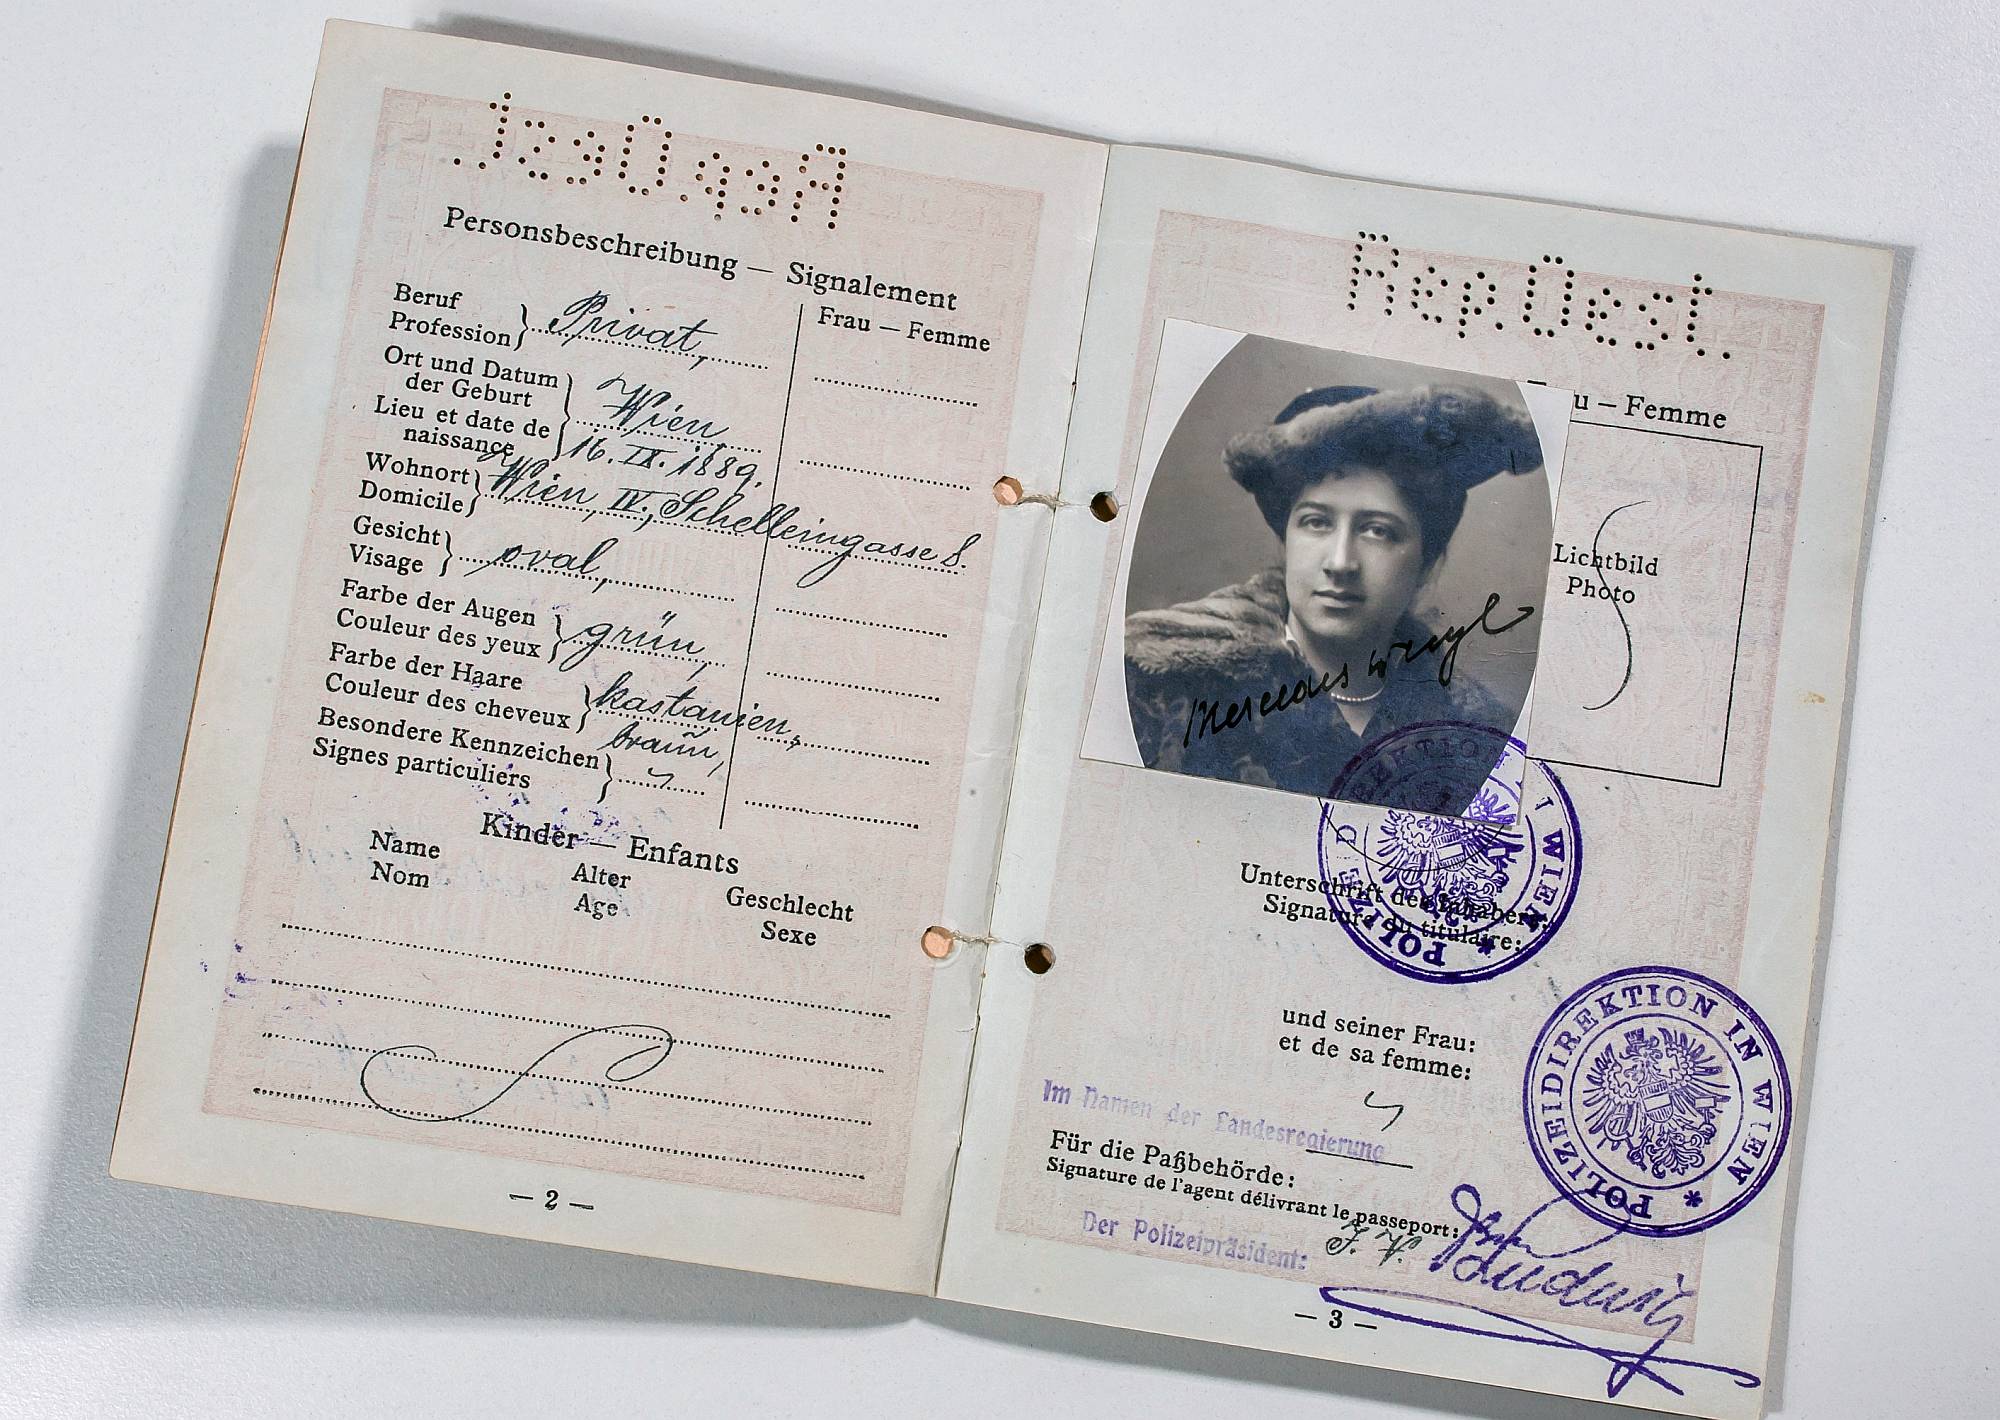 Rep.Öst.
Personsbeschreibung — Signalement
Frau — Femme
Beruf
Profession
Privat,
Ort und Datum
der Geburt
Lieu et date de
naissance
Wien,
16. IX. 1889.
Wohnort
Domicile
Wien, IV., Schelleingasse 8.
Gesicht
Visage
oval,
Farbe der Augen
Couleur des yeux
grün,
Farbe der Haare
Couleur des cheveux
kastanien,
braun,
Besondere Kennzeichen
Signes particuliers
Kinder — Enfants
Name
Nom
Alter
Age
Geschlecht
Sexe
— 2 —
Rep.Öest.
u — Femme
Lichtbild
Photo
Mercedes Weigl
POLIZEIDIREKTION IN WIEN
Unterschrift des Inhabers:
Signature du titulaire:
und seiner Frau:
et de sa femme:
POLIZEIDIREKTION IN WIEN
Im Namen der Landesregierung
Für die Paßbehörde:
Signature de l'agent délivrant le passeport:
Der Polizeipräsident:
Ludwig
— 3 —